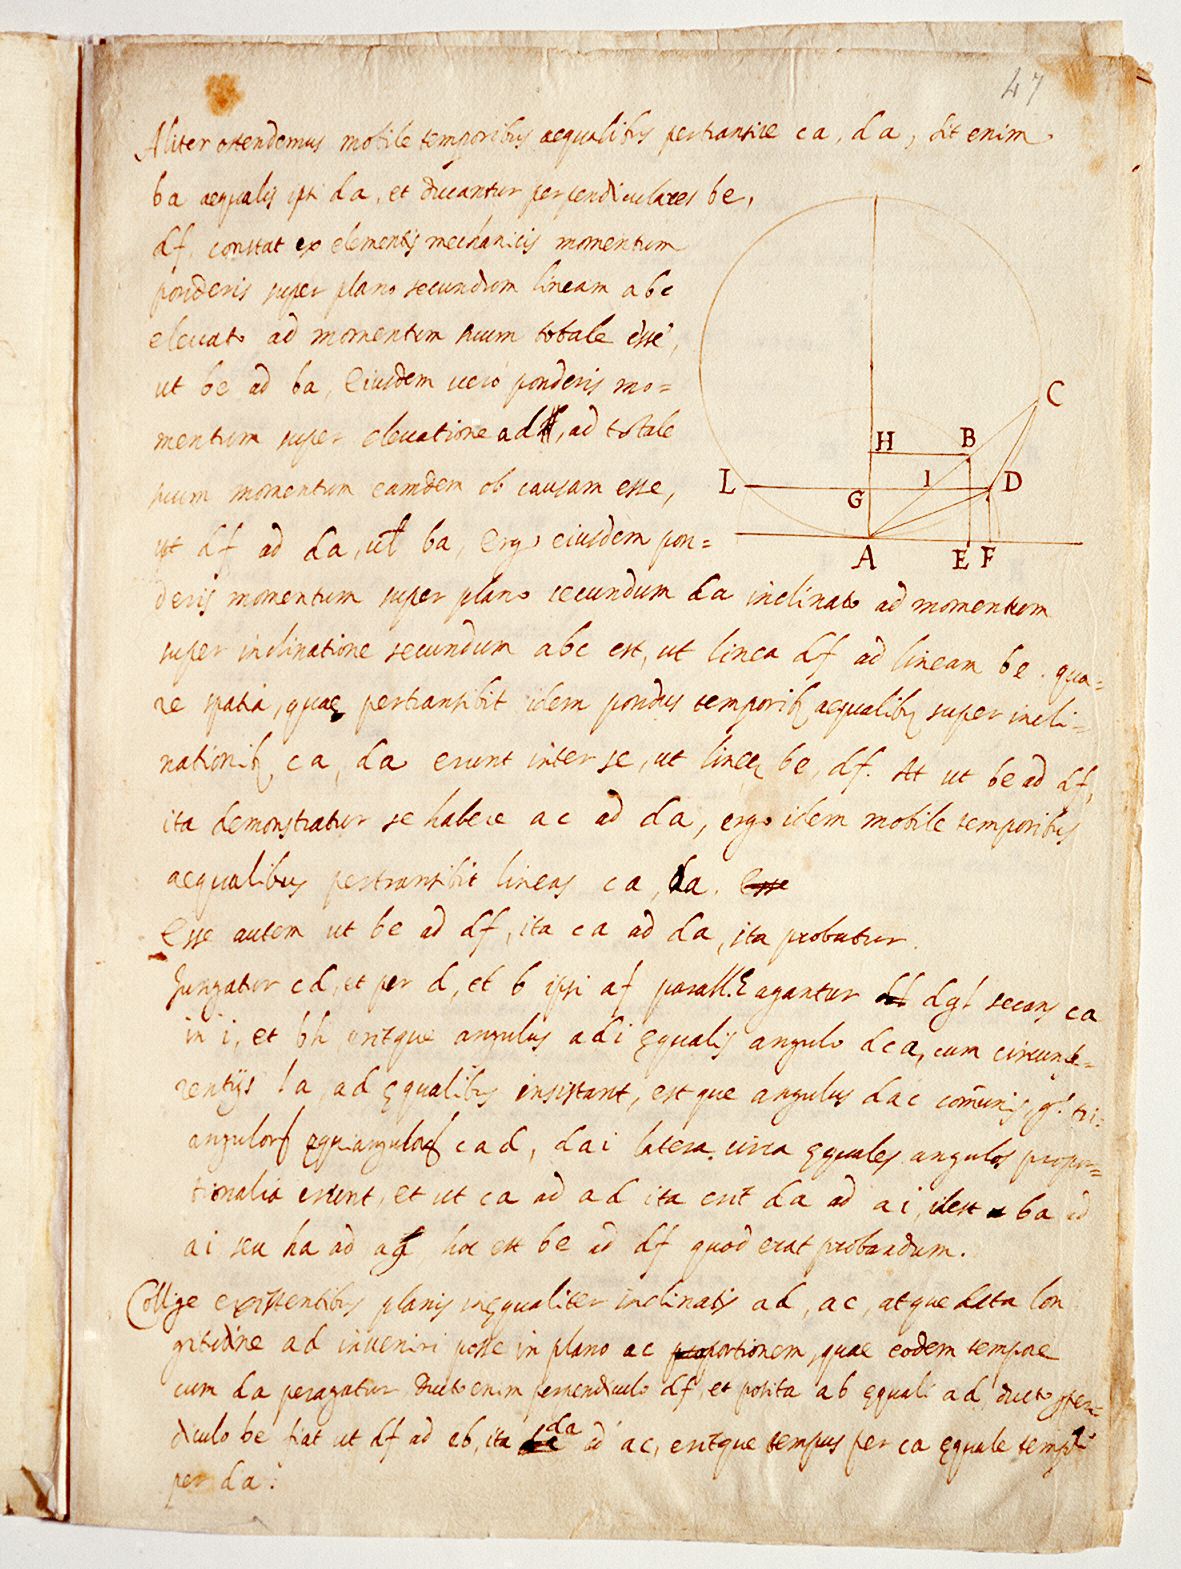 47
Aliter ostendemus mobile temporibus aequalibus pertransire ca, da, sit enim
ba aequalis ipsi da, et ducantur perpendiculares be,
df. constat ex elementis mechanicis momentum
ponderis super plano secundum lineam abc
elevato ad momentum suum totale esse,
ut be ad ba, Eiusdem vero ponderis mo=
mentum super elevatione ad, ad totale
suum momentum eamdem ob causam esse,
ut df ad da, vel ba, Ergo eiusdem pon=
deris momentum super plano secundum da inclinato ad momentum
super inclinatione secundum abc est, ut linea df ad lineam be. qua=
re spatia, quae pertransibit idem pondus temporib. aequalib. super incli=
nationib. ca, da erunt inter se, ut lineę be, df. At ut be ad df,
ita demonstratur se habere ac ad da, ergo idem mobile temporibus
aequalibus pertransibit lineas ca, da. Esse
Esse autem ut be ad df, ita ca ad da, ita probatur.
Jungatur cd, et per d, et b ipsi af parall.ę agantur dgl secans ca
in i, et bh eritque angulus adi ęqualis angulo dca, cum circunfe=
rentijs la, ad ęqualibus insistant, estque angulus dac comũnis, gͦ. tri=
angulorũ ęquiangulorũ cad, dai latera circa ęquales angulos propor=
tionalia erunt, et ut ca ad ad ita erit da ad ai, idest ba ad
ai seu ha ad ag hoc est be ad df quod erat probandum.
Collige existentibus planis inęqualiter inclinatis ad, ac, atque data lon
gitudine ad inveniri posse in plano ac proportionem quae eodem tempore
cum da peragatur. Ducto enim perpendiculo df, et posita ab ęquali ad, ducto perpen=
diculo be fiat ut df ad eb, ita da ad ac, eritque tempus per ca ęquale tempi
per da.
C
H
B
L
I
D
G
A
E
F